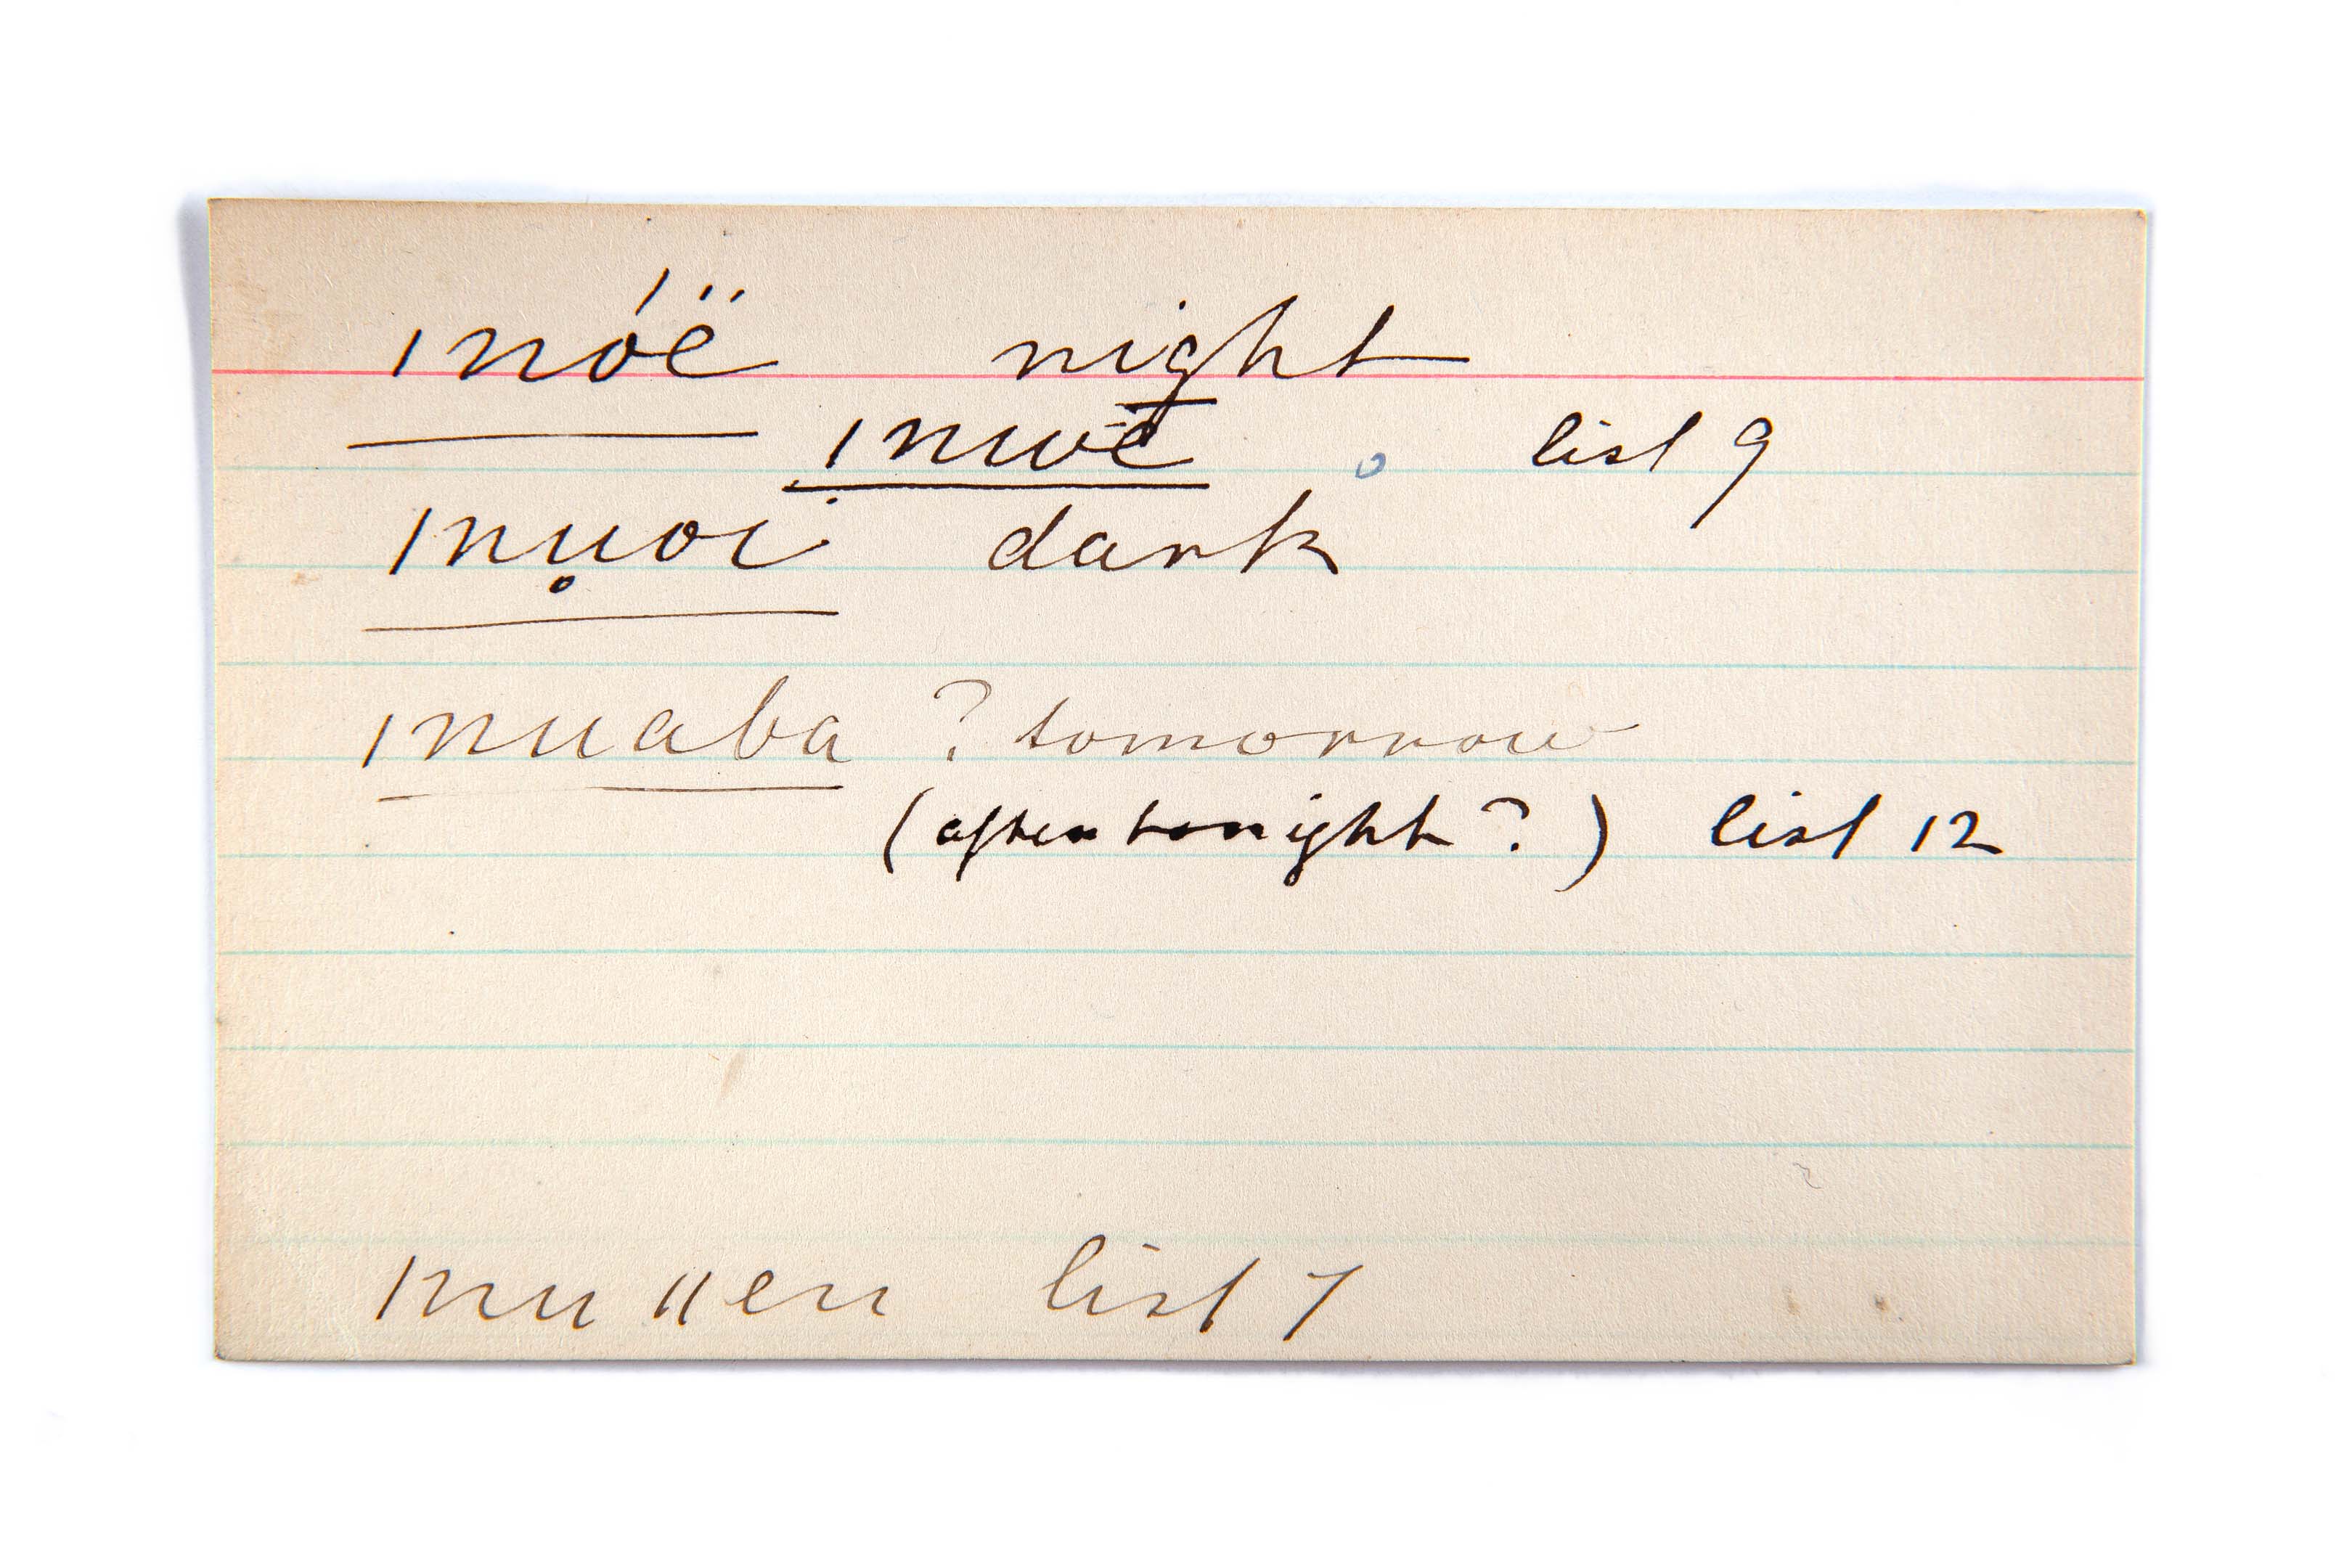 ınóë night
ınuoë list 9
ınụoi dark
ınuaba ? tomorrow
(after tonight ?) list 12
ınu llen list 7